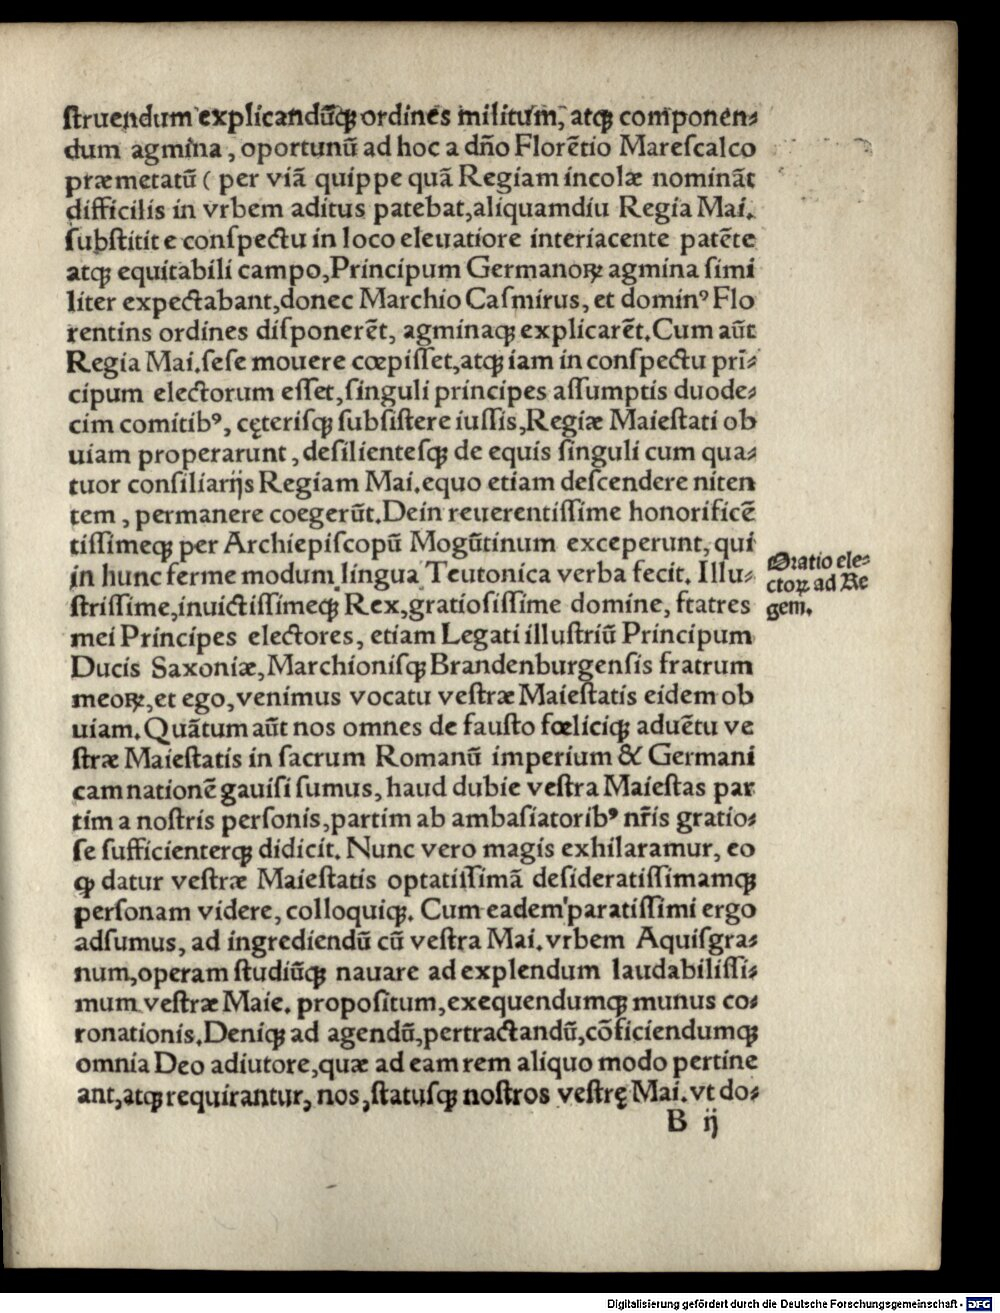 ſtruendum explicandūq; ordines militum, atq; componen⸗
dum agmina, oportunū ad hoc a dño Florētio Mareſcalco
præmetatū ( per viā quippe quā Regiam incolæ nominãt
difficilis in vrbem aditus patebat, aliquamdiu Regia Mai.
ſubſtitit e conſpectu in loco eleuatiore interiacente patēte
atq; equitabili campo, Principum Germanoꝝ agmina ſimi
liter expectabant, donec Marchio Caſmirus, et dominꝰ Flo
rentins ordines diſponerēt, agminaq; explicarēt. Cum aūt
Regia Mai. ſeſe mouere cœpiſſet, atq; iam in conſpectu prī⸗
cipum electorum eſſet, ſinguli principes aſſumptis duode⸗
cim comitibꝰ, cęteriſq; ſubſiſtere iuſſis, Regiæ Maieſtati ob
uiam properarunt, deſilienteſq; de equis ſinguli cum qua⸗
tuor conſiliarijs Regiam Mai. equo etiam deſcendere niten
tem, permanere coegerūt. Dein reuerentiſſime honorificē
tiſſimeq; per Archiepiſcopū Mogūtinum exceperunt, qui
in hunc ferme modum lingua Teutonica verba fecit. Illu⸗
ſtriſſime, inuictiſſimeq; Rex, gratioſiſſime domine, ftatres
mei Principes electores, etiam Legati illuſtriū Principum
Ducis Saxoniæ, Marchioniſq; Brandenburgenſis fratrum
meoꝝ, et ego, venimus vocatu veſtræ Maieſtatis eidem ob
uiam. Quātum aūt nos omnes de fauſto fœliciq; aduētu ve
ſtræ Maieſtatis in ſacrum Romanū imperium & Germani
cam nationē gauiſi ſumus, haud dubie veſtra Maieſtas par
tim a noſtris perſonis, partim ab ambaſiatoribꝰ nr̃is gratio⸗
ſe ſufficienterq; didicit. Nunc vero magis exhilaramur, eo
ꝙ datur veſtræ Maieſtatis optatiſſimā deſideratiſſimamq;
perſonam videre, colloquiq;. Cum eadem paratiſſimi ergo
adſumus, ad ingrediendū cū veſtra Mai. vrbem Aquiſgra⸗
num, operam ſtudiūq; nauare ad explendum laudabiliſſi⸗
mum veſtræ Maie. propoſitum, exequendumq; munus co⸗
ronationis. Deniq; ad agendū, pertractandū, cōficiendumq;
omnia Deo adiutore, quæ ad eam rem aliquo modo pertine
ant, atq; requirantur, nos, ſtatuſq; noſtros veſtrę Mai. vt do⸗
B ij
Oratio ele⸗
ctoꝝ ad Re
gem.
Digitalisierung gefördert durch die Deutsche Forschungsgemeinschaft - DFG